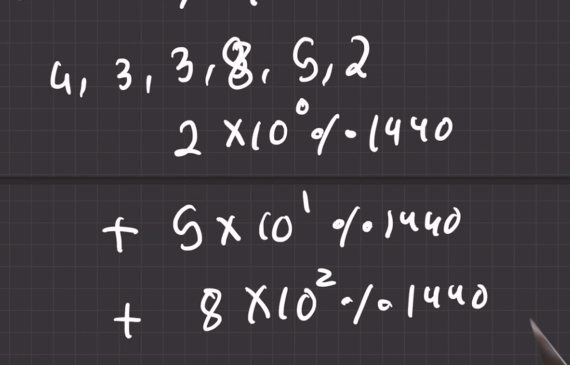 4, 3, 3, 8, 5, 2
2 × 10⁰ % 1440
+ 5 × 10¹ % 1440
+ 8 × 10² % 1440